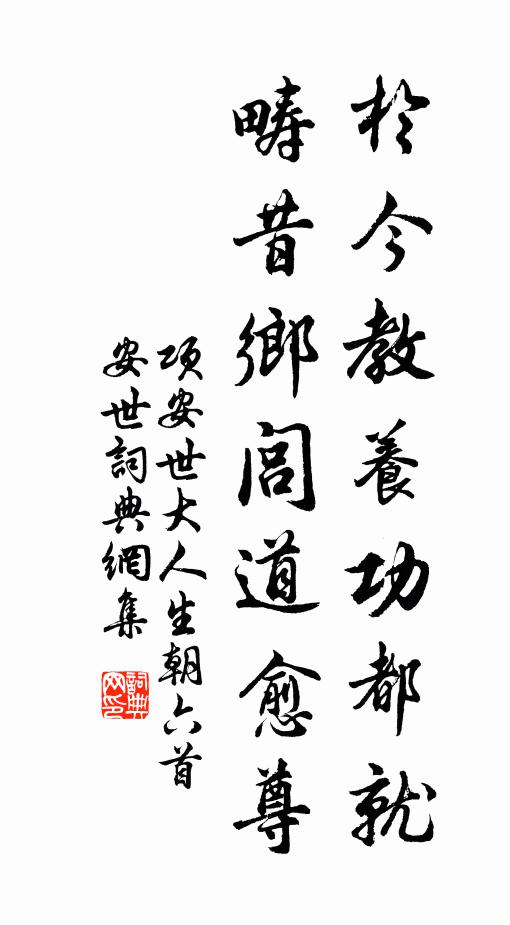 於今教養功都就
疇昔鄉閭道愈尊
項安世大人生朝六首
安世詞典網集
詞典網印